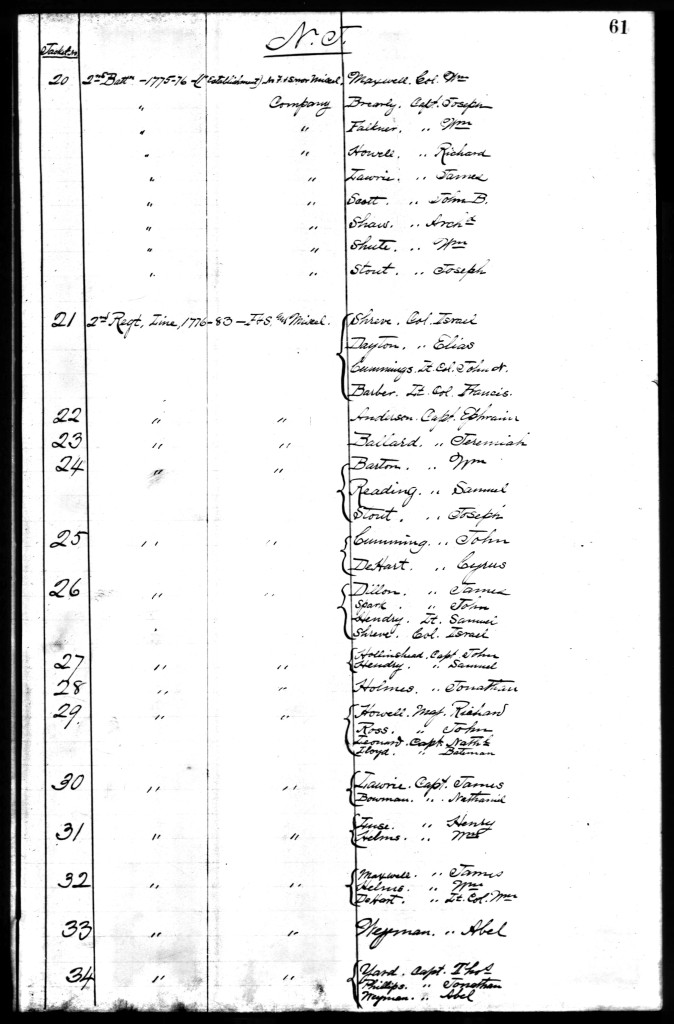 61
N. J.
Jacket no
20 2nd Battn - 1775-76 (1st Establishment) F & S and Miscel. Maxwell. Col. Wm
" Company Brearly. Capt. Joseph
" " Falkner. " Wm
" " Howell. " Richard
" " Lawrie. " James
" " Scott. " John B.
" " Shaw. " Archd
" " Shute. " Wm
" " Stout. " Joseph
21 2nd Regt, Line, 1776-83 - F & S, and Miscel. Shreve. Col. Israel
Dayton. " Elias
Cummings. Lt. Col. John N.
Barber. Lt. Col. Francis.
22 " " Anderson. Capt. Ephraim
23 " " Ballard. " Jeremiah
24 " " Barton. " Wm
Reading. " Samuel
Stout. " Joseph
25 " " Cumming. " John
DeHart. " Cyrus
26 " " Dillon. " James
Spark. " John
Hendry. Lt. Samuel
Shreve. Col. Israel
27 " " Hollinshead. Capt. John
Hendry. " Samuel
28 " " Holmes. " Jonathan
29 " " Howell. Maj. Richard
Ross. " John
Leonard. Capt. Nathl
Lloyd. " Bateman
30 " " Lawrie. Capt. James
Bowman. " Nathaniel
31 " " Luse. " Henry
Helms. " Wm
32 " " Maxwell. " James
Helms. " Wm
DeHart. " Lt. Col. Wm
33 " " Weyman. " Abel
34 " " Yard. Capt. Thos
Phillips. " Jonathan
Weyman. " Abel